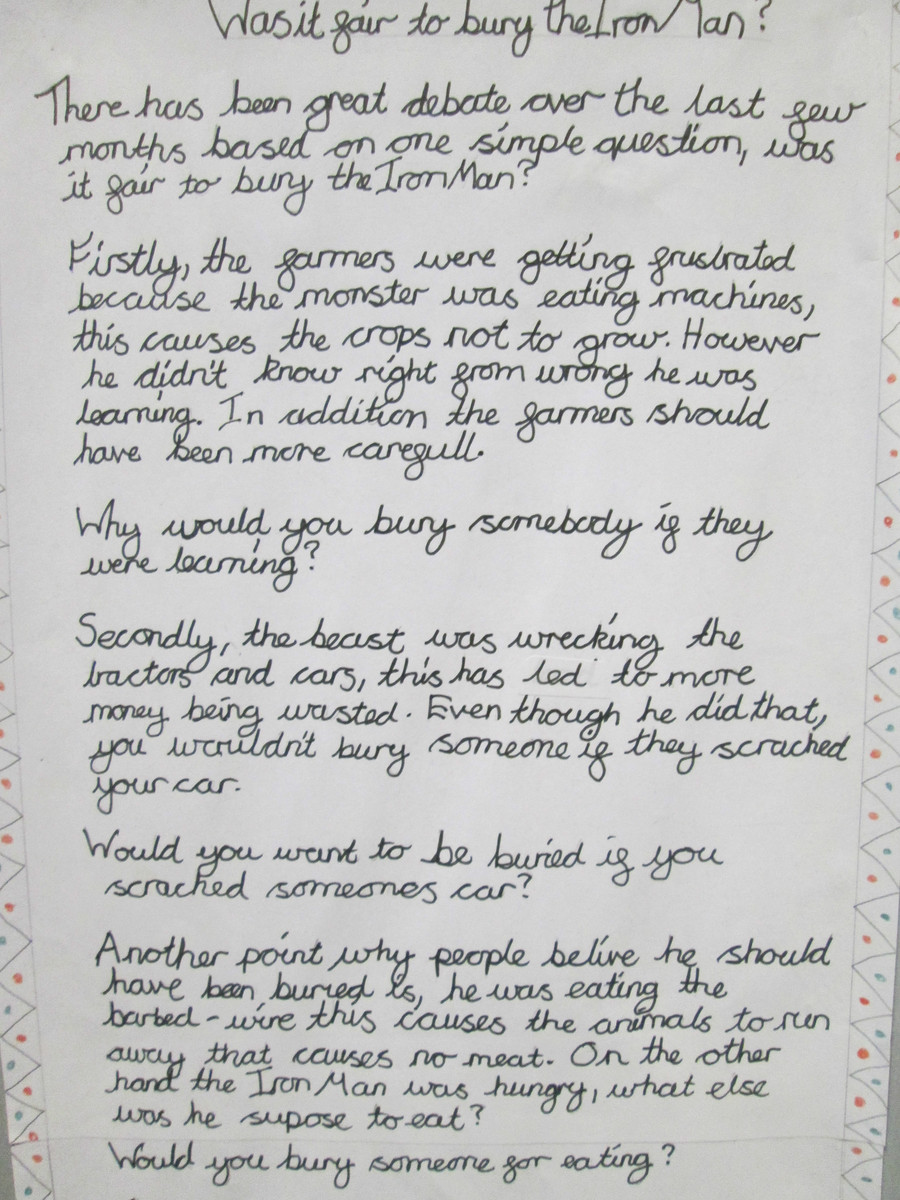 Was it fair to bury the Iron Man?
There has been great debate over the last few
months based on one simple question, was
it fair to bury the Iron Man?
Firstly, the farmers were getting frustrated
because the monster was eating machines,
this causes the crops not to grow. However
he didn't know right from wrong he was
learning. In addition the farmers should
have been more carefull.
Why would you bury somebody if they
were learning?
Secondly, the beast was wrecking the
tractors and cars, this has led to more
money being wasted. Even though he did that,
you wouldn't bury someone if they scrached
your car.
Would you want to be buried if you
scrached someones car?
Another point why people belive he should
have been buried is, he was eating the
barbed-wire this causes the animals to run
away that causes no meat. On the other
hand the Iron Man was hungry, what else
was he supose to eat?
Would you bury someone for eating?